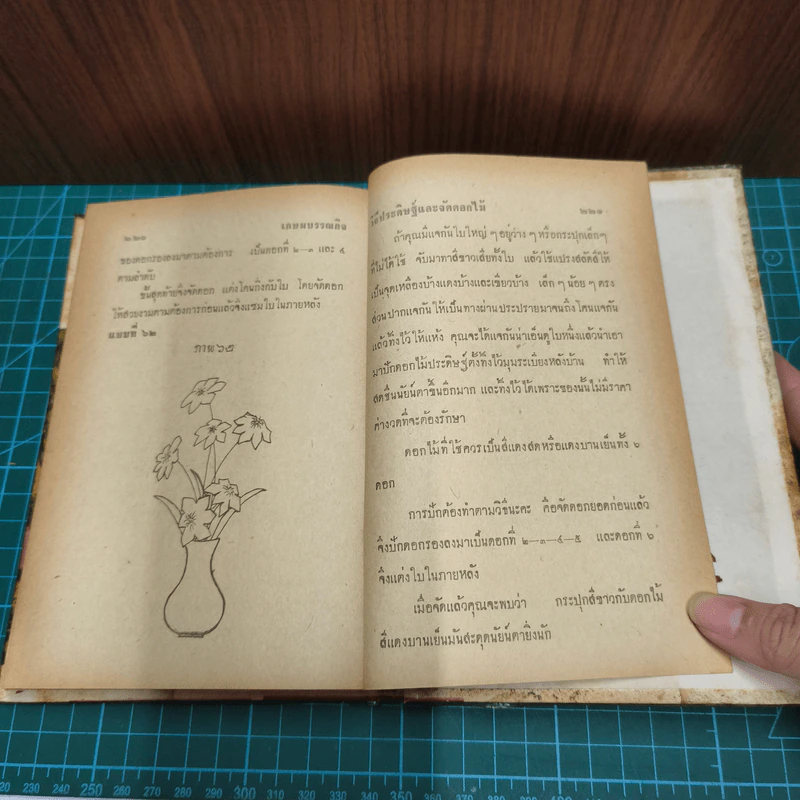 ๒๒๐ เกษมบรรณกิจ
ของดอกรองลงมาตามต้องการ เป็นดอกที่ ๒—๓ และ ๔
ตามลำดับ
ขั้นสุดท้ายจึงจัดดอก แต่งโคนกิ่งกับใบ โดยจัดดอก
ให้สวยงามตามต้องการก่อนแล้วจึงแซมใบในภายหลัง
แบบที่ ๖๒
ภาพ ๖๕
วิธีประดิษฐ์และจัดดอกไม้ ๒๒๑
ถ้าคุณมีแจกันใบใหญ่ ๆ อยู่ว่าง ๆ หรือกระปุกเล็กๆ
ที่ไม่ได้ใช้ จับมาทาสีขาวเสียทั้งใบ แล้วใช้แปรงสลัดสีให้
เป็นจุดเหลืองบ้างแดงบ้างและเขียวบ้าง เล็ก ๆ น้อย ๆ ตรง
ส่วนปากแจกันให้เป็นทางผ่านประปรายมาจนถึงโคนแจกัน
แล้วทิ้งไว้ให้แห้ง คุณจะได้แจกันน่าเอ็นดูใบหนึ่งแล้วนำเอา
มาปักดอกไม้ประดิษฐ์ตั้งทิ้งไว้มุมระเบียงหลังบ้าน ทำให้
สดชื่นนัยน์ตาขึ้นอีกมาก และทิ้งไว้ได้เพราะของนั้นไม่มีราคา
ค่างวดที่จะต้องรักษา
ดอกไม้ที่ใช้ควรเป็นสีแดงสดหรือแดงบานเย็นทั้ง ๖
ดอก
การปักต้องทำตามวิธีนะคะ คือจัดดอกยอดก่อนแล้ว
จึงปักดอกรองลงมาเป็นดอกที่ ๒—๓—๔—๕ และดอกที่ ๖
จึงแต่งใบในภายหลัง
เมื่อจัดแล้วคุณจะพบว่า กระปุกสีขาวกับดอกไม้
สีแดงบานเย็นมันสะดุดนัยน์ตายิ่งนัก
20 230 240 250 260 270 280 290 300 310 320 330 340 350 360 370 380